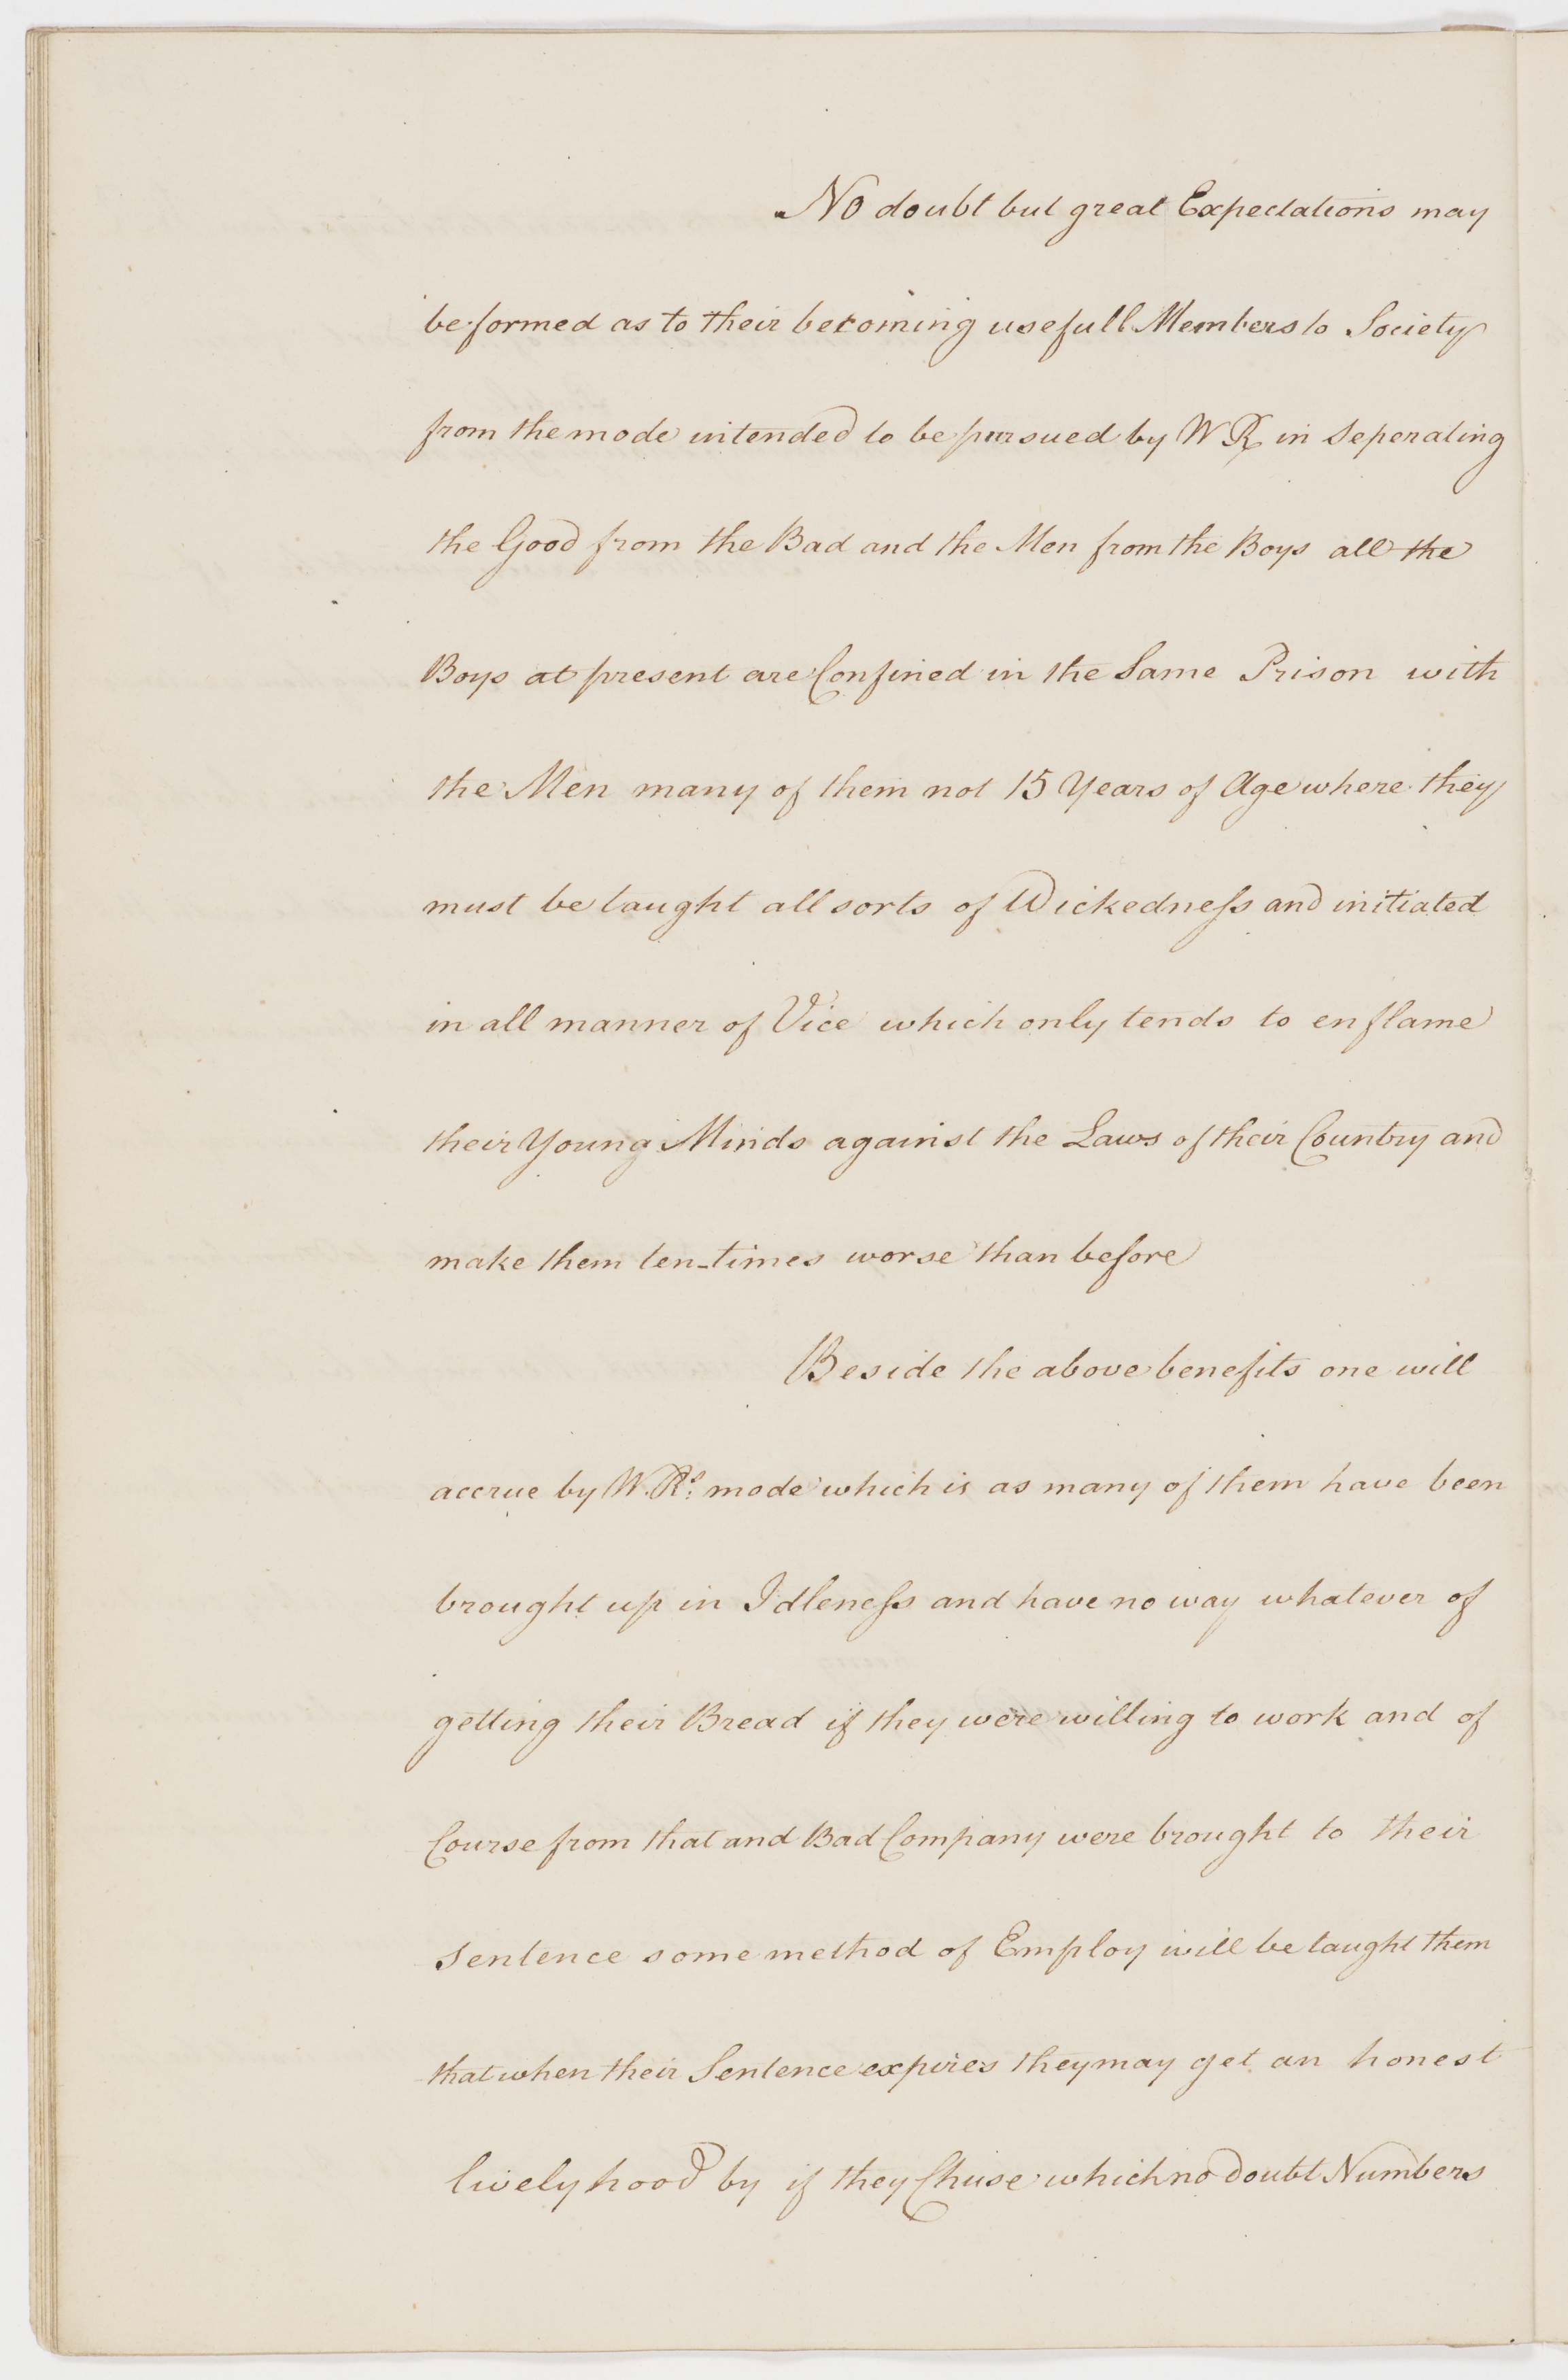 No doubt but great Expectations may
be formed as to their becoming usefull Members to Society
from the mode intended to be pursued by W R in Seperating
the Good from the Bad and the Men from the Boys all the
Boys at present are Confined in the Same Prison with
the Men many of them not 15 Years of Age where they
must be taught all sorts of Wickedneſs and initiated
in all manner of Vice which only tends to enflame
their Young Minds against the Laws of their Country and
make them ten-times worse than before
Beside the above benefits one will
accrue by W. Rs. mode which is as many of them have been
brought up in Idleneſs and have no way whatever of
getting their Bread if they were willing to work and of
Course from that and Bad Company were brought to their
Sentence some method of Employ will be taught them
that when their Sentence expires they may get an honest
livelyhood by if they Chuse which no doubt Numbers